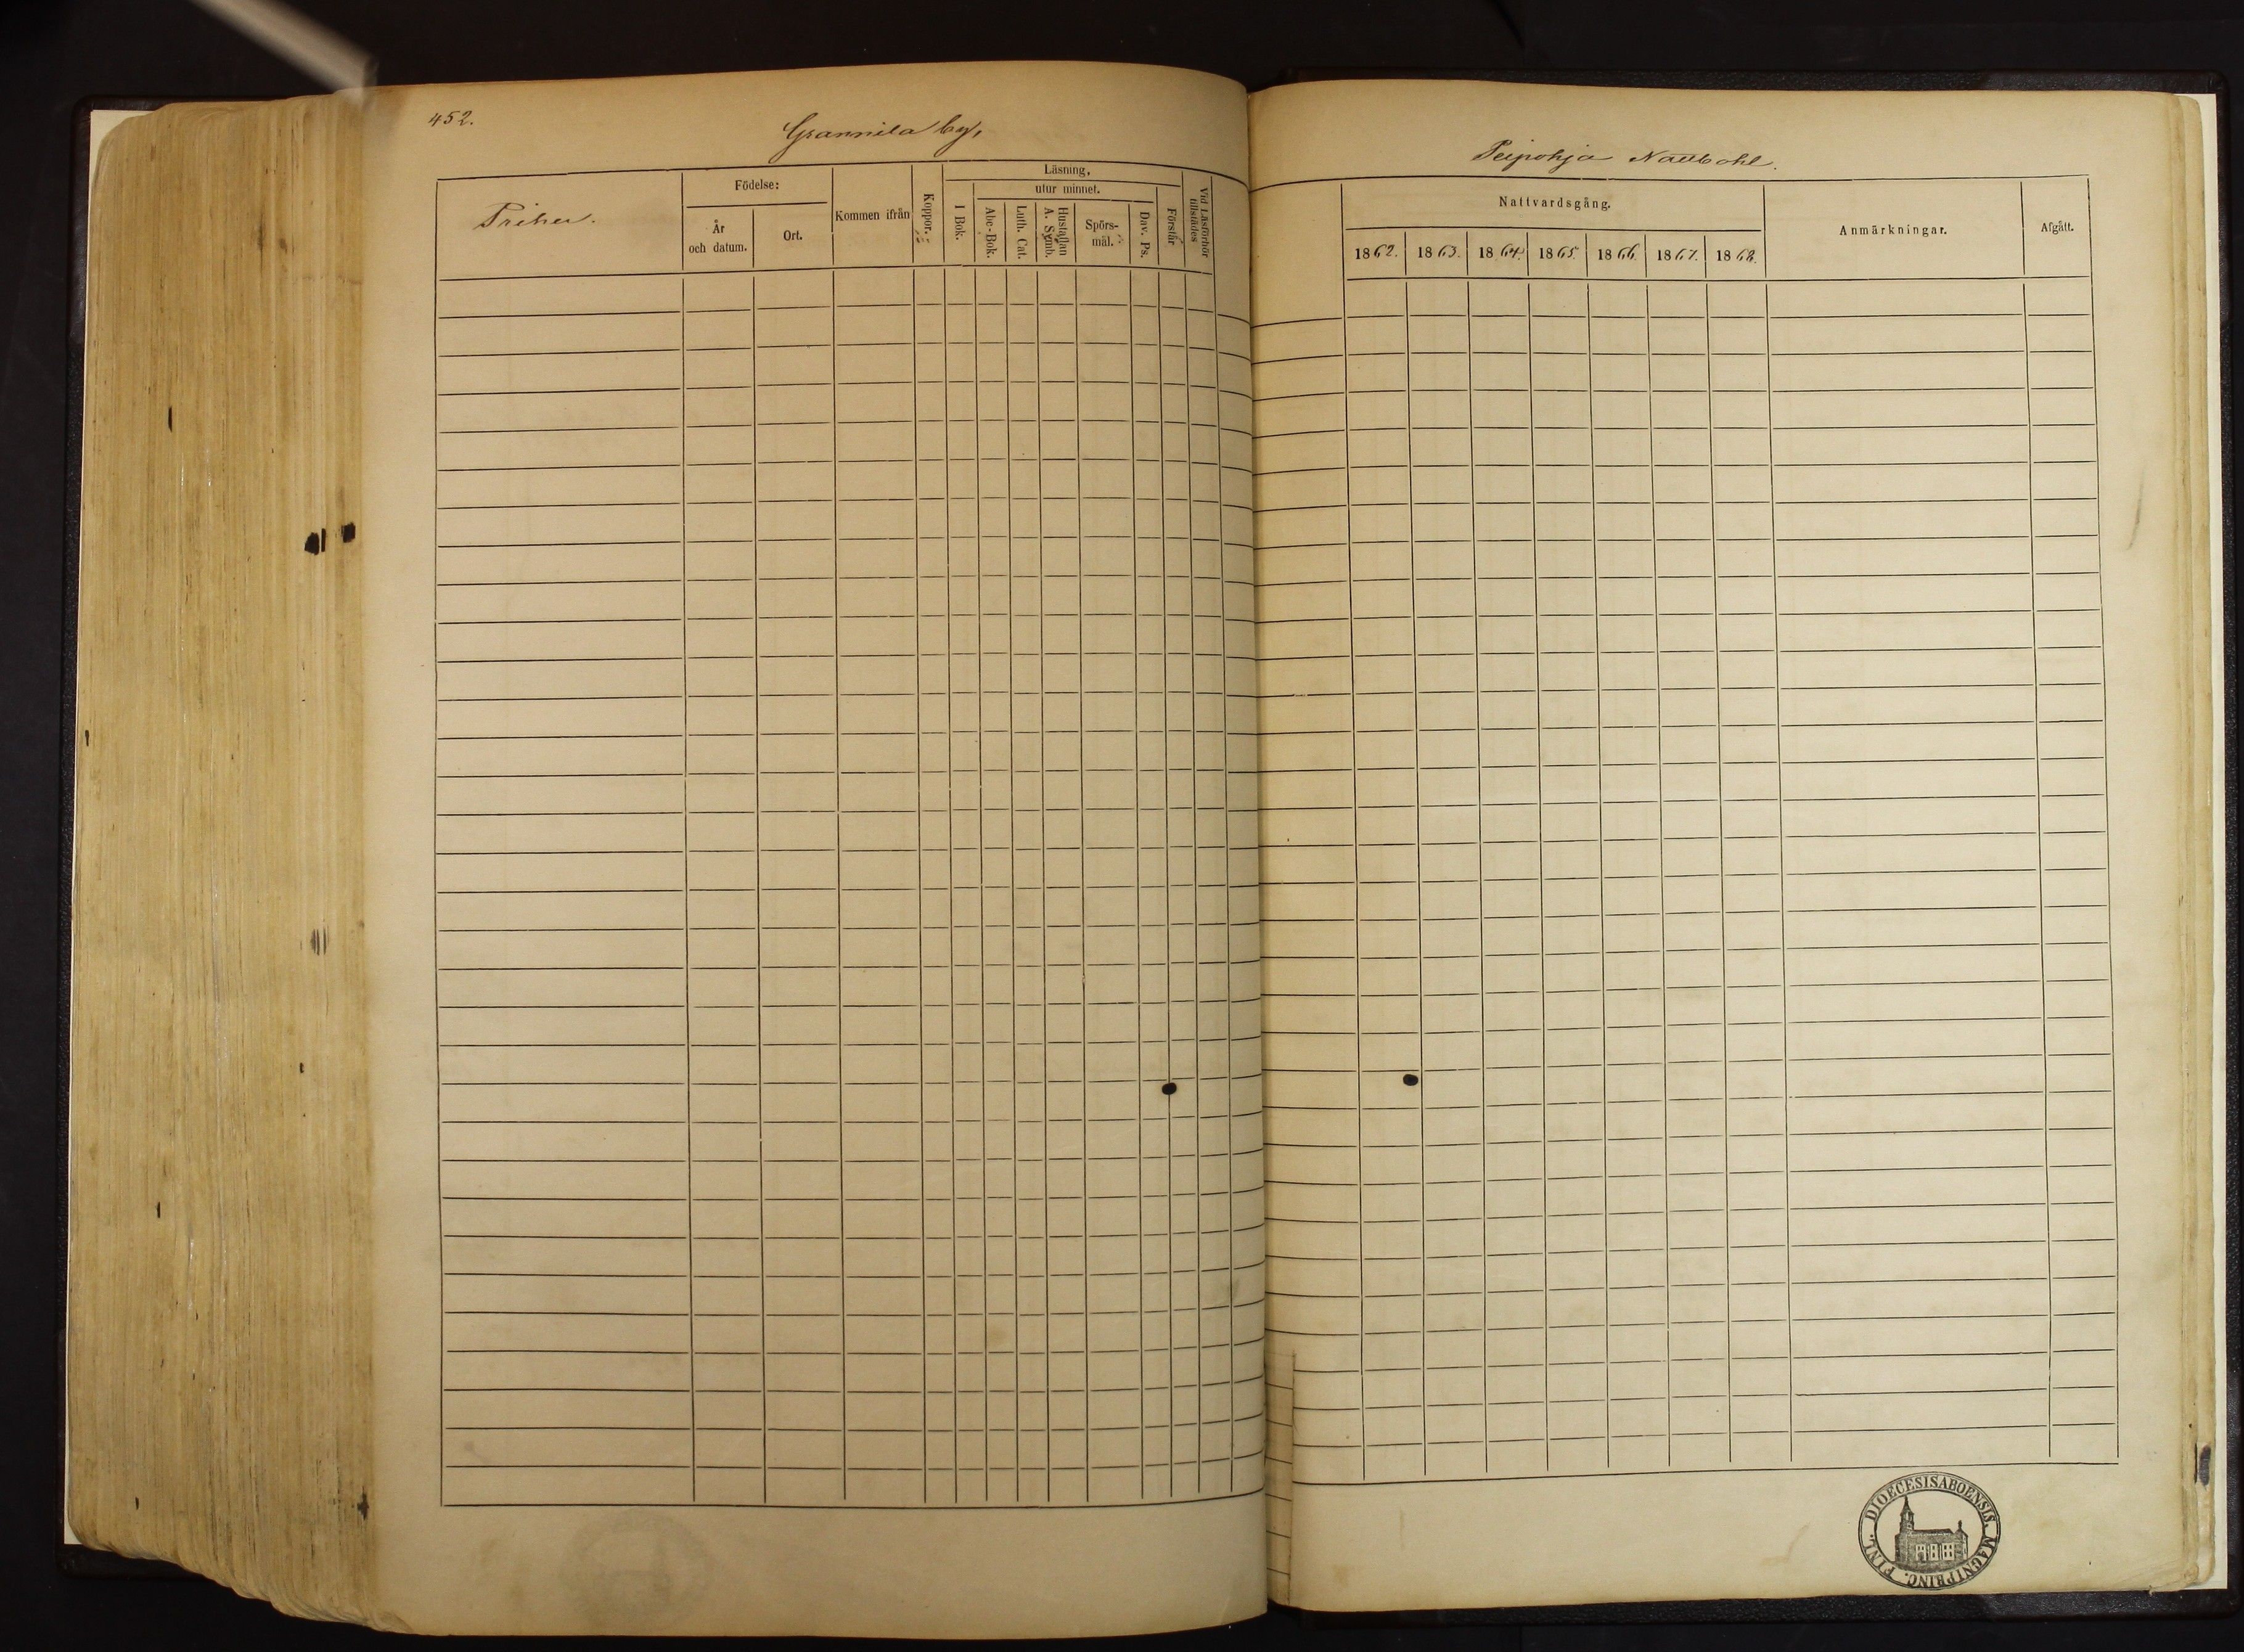 452.
Grannila by,
Födelse:
År
och datum.
Ort.
Kommen ifrån
Koppor.
Läsning,
I Bok.
utur minnet.
Abc-Bok.
Luth. Cat.
Hustaflan
A. Symb.
Spörs-
mål.
Dav. Ps.
Förstår
Vid Läsförhör
tillstädes
Peipohja Nattbohl.
Nattvardsgång.
1862. 1863. 1864. 1865. 1866. 1867. 1868.
Anmärkningar.
Afgått.
DIOECESIS ABOENSIS. MAGNI PRINC. FINL.